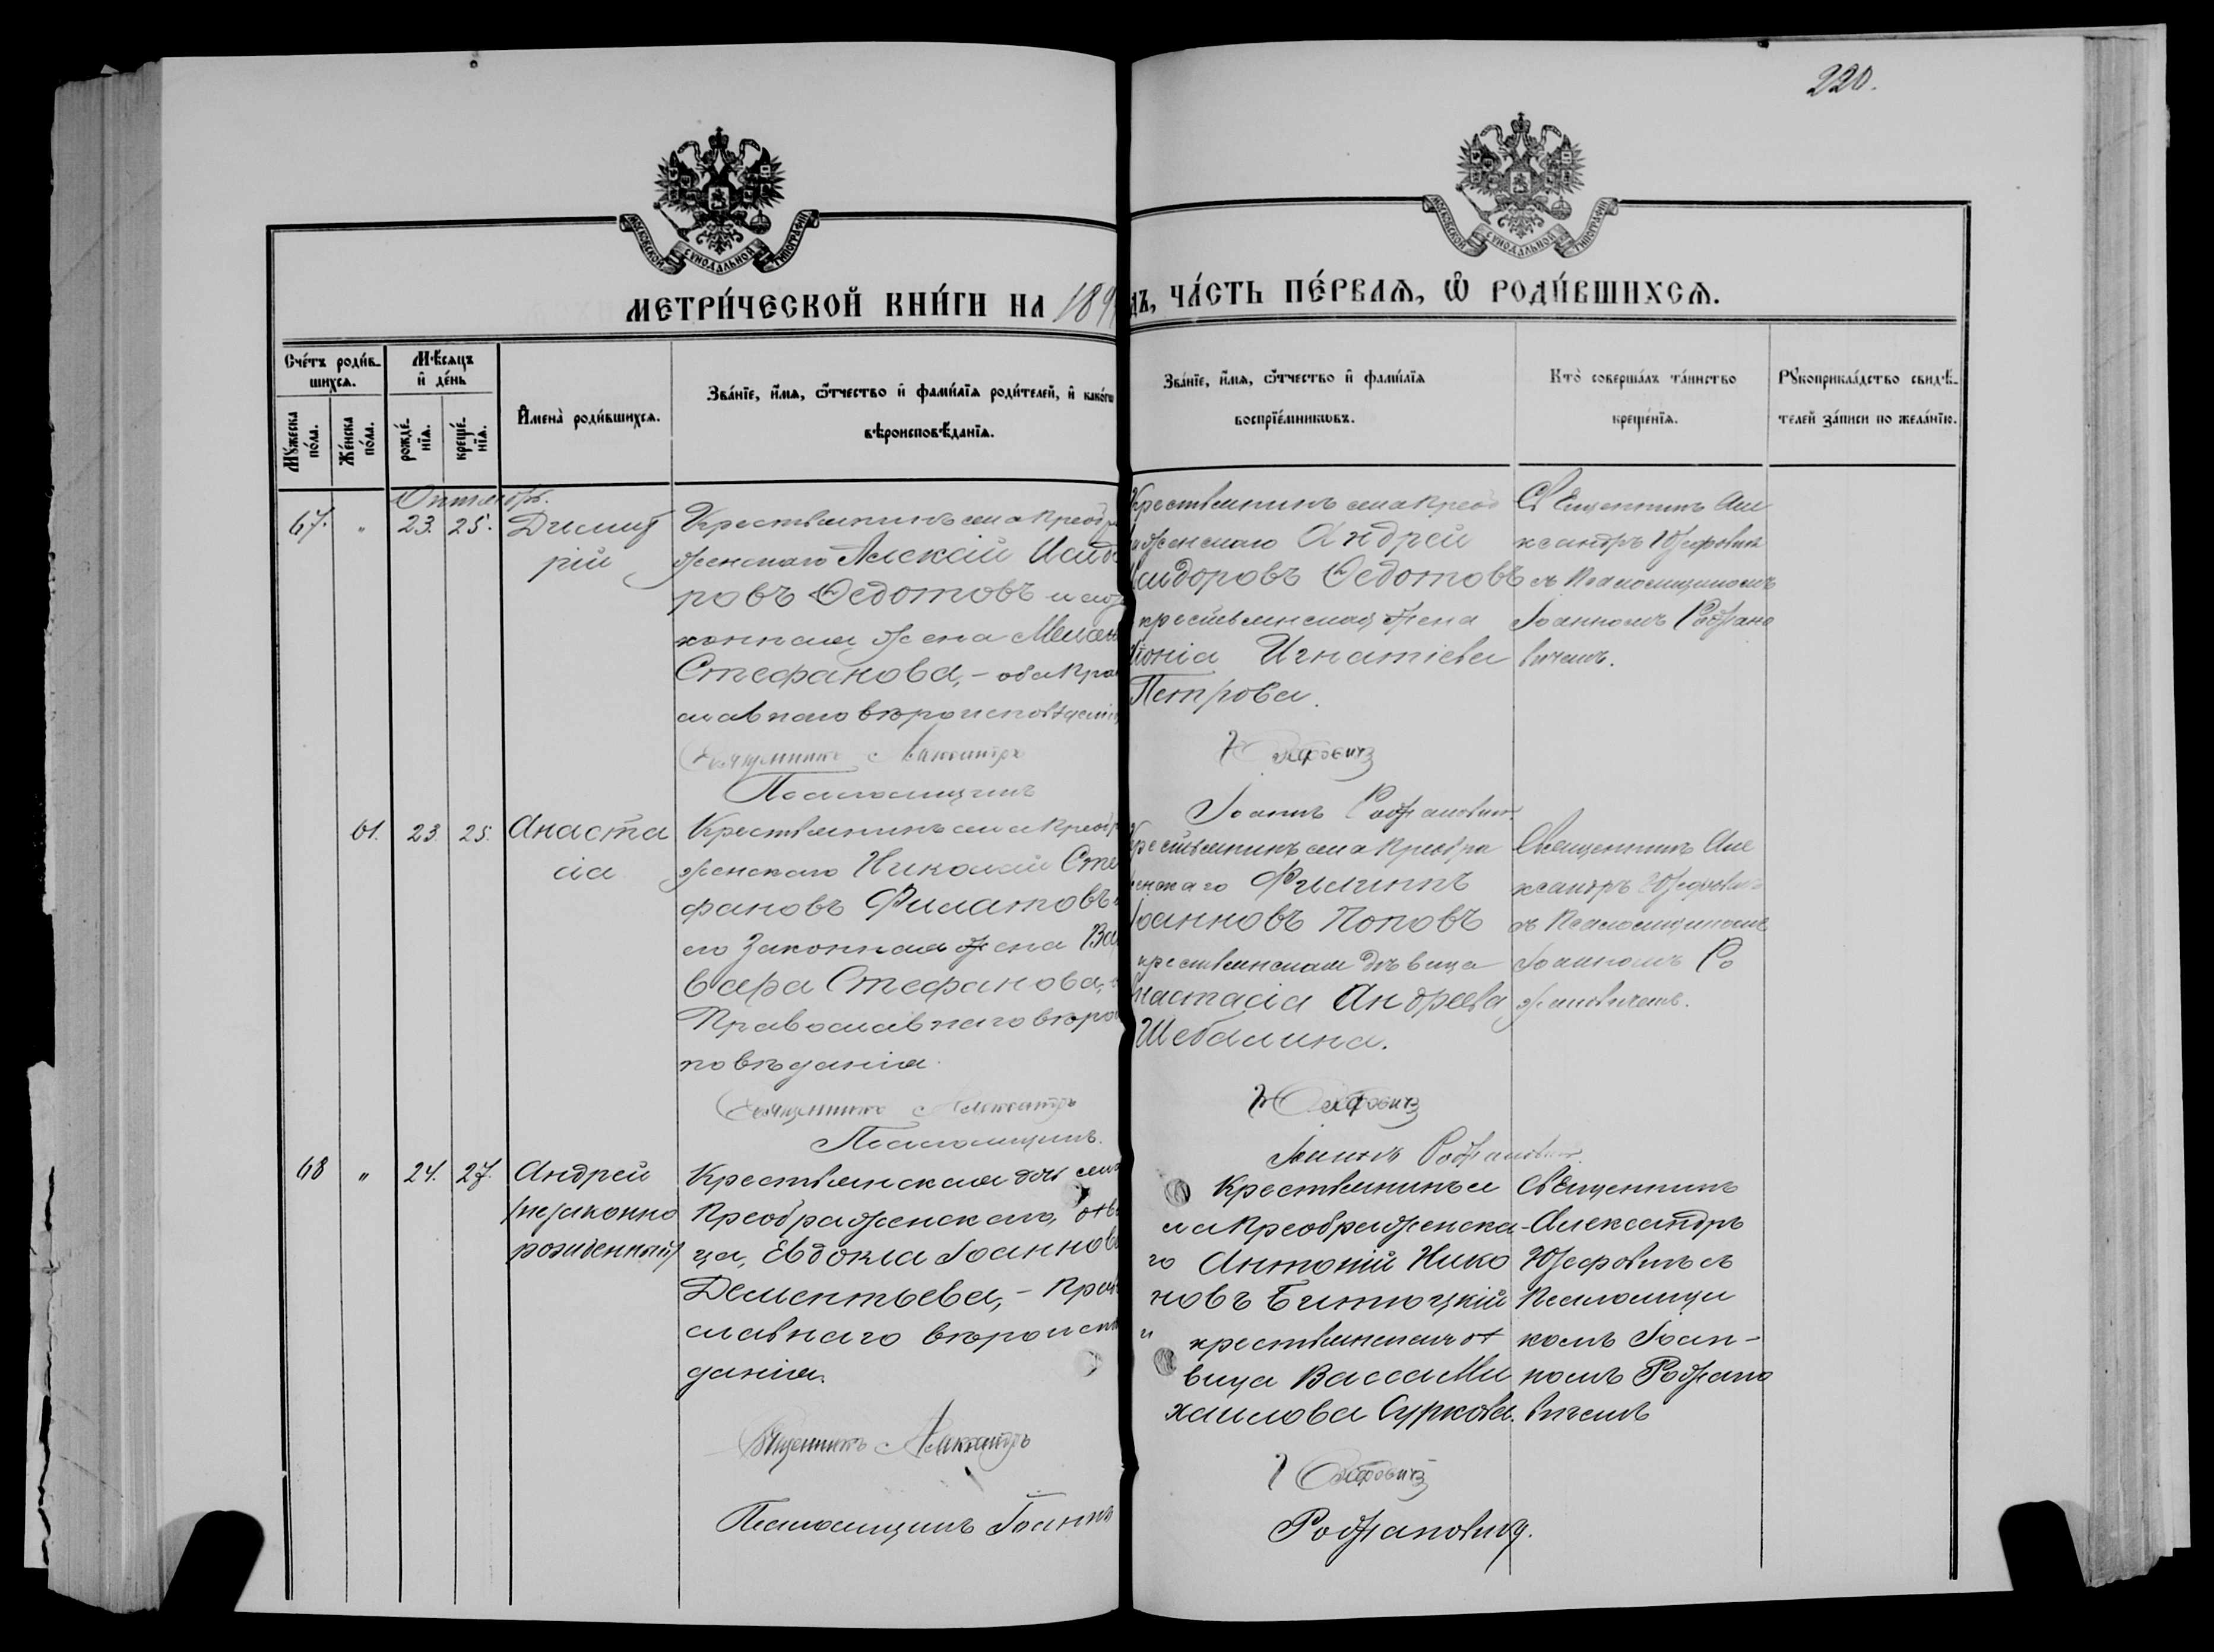 220.
МОСКОВСКОЙ СѴНОДАЛЬНОЙ ТИПОГРАФІИ
МОСКОВСКОЙ СѴНОДАЛЬНОЙ ТИПОГРАФІИ
МЕТРИ́ЧЕСКОЙ КНИ́ГИ НА 189
дъ, ЧА́СТЬ ПЕ́РВАѦ, Ѡ РОДИ́ВШИХСѦ.
Сче́тъ роди́в-
шихсѧ.
Мꙋ́жеска по́ла.
Же́нска по́ла.
Мѣ́сѧцъ и де́нь
рожде́-нїѧ.
креще́-нїѧ.
Имена̀ роди́вшихсѧ.
Зва́нїе, и́мѧ, ѻ́тчество и фами́лїѧ роди́телей, и како́гѡ
вѣроисповѣ́данїѧ.
Зва́нїе, и́мѧ, ѻ́тчество и фами́лїѧ
воспрїе́мникѡвъ.
Кто̀ соверша́лъ та́инство
креще́нїѧ.
Рꙋкоприкла́дство свидѣ́-
телей за́писи по жела́нїю.
Октябрь.
67. " 23. 25. Димит
рій
Крестьянинъ села Преобра
женскаго Алексій Исидо
ровъ Ѳедотовъ и его
конная жена Мелан
Стефанова, - оба Пра
славнаго вѣроисповѣдані
Священникъ Александръ
Псаломщикъ
Крестьянинъ села Преоб
женскаго Андрей
Исидоровъ Ѳедотовъ
крестьянская жена
онія Игнатіева
Петрова.
Юзефовичъ
Іоаннъ Рожановичъ
Священникъ Але
ксандръ Юзефовичъ
съ Псаломщикомъ
Іоанномъ Рожано
вичемъ.
61. 23. 25. Анаста
сія
Крестьянинъ села Преобр
женскаго Николай Сте
фановъ Филатовъ
его законная жена Ва
вара Стефанова,
Православнаго вѣро
повѣданія.
Священникъ Александръ
Псаломщикъ.
Крестьянинъ села Преобра
женскаго Филиппъ
Іоанновъ Поповъ
крестьянская дѣвица
Анастасія Андреева
Шебалина.
Юзефовичъ
Іоаннъ Рожановичъ.
Священникъ Але
ксандръ Юзефовичъ
съ Псаломщикомъ
Іоанномъ Ро
жановичемъ.
68 " 24. 27. Андрей
/незаконно
рожденный/
Крестьянская дочь села
Преображенскаго, дѣв
ца, Евдокіа Іоаннов
Дементьева, - Прав
славнаго вѣроиспо
данія.
Священникъ Александръ
Псаломщикъ Іоаннъ
Крестьянинъ се
ла Преображенска-
го Антоній Нико
новъ Битюцкій
и крестьянская дѣ
вица Васса Ми
хаилова Суркова.
Юзефовичъ
Рожановичъ.
Священникъ
Александръ
Юзефовичъ съ
Псаломщи
комъ Іоан-
номъ Рожано
вичемъ